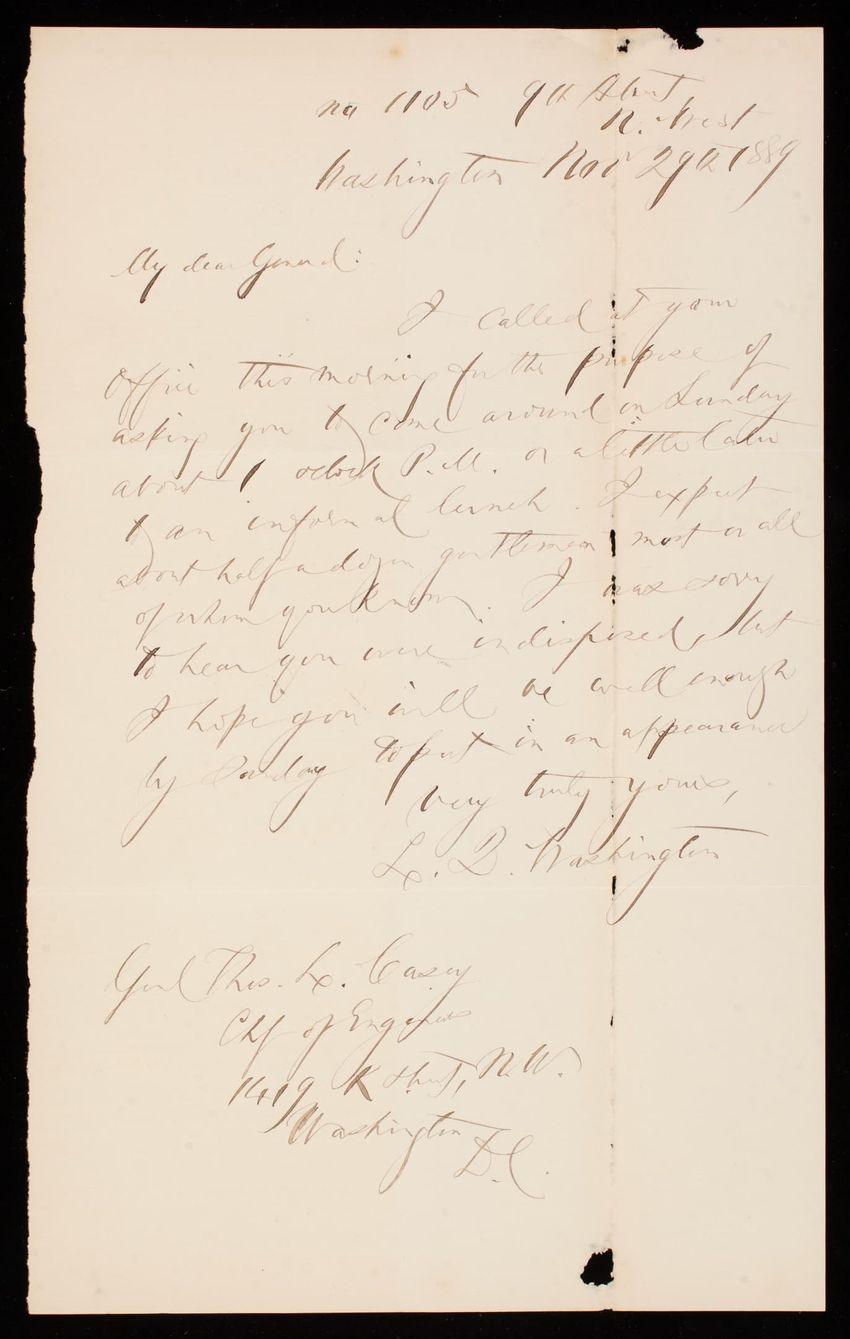 No 1105 9th Street
N. West
Washington Nov 29th 1889
My dear General:
I called at your
office this morning for the purpose of
asking you to come around on Sunday
about 1 oclock P.M. or a little later
to an informal lunch. I expect
about half a dozen gentlemen most or all
of whom you know. I was sorry
to hear you were indisposed, but
I hope you will be well enough
by Sunday to put in an appearance
Very truly yours,
L. Q. Washington
Genl Thos. L. Casey
Chf of Engineers
1419 K Street, N.W.
Washington
D.C.